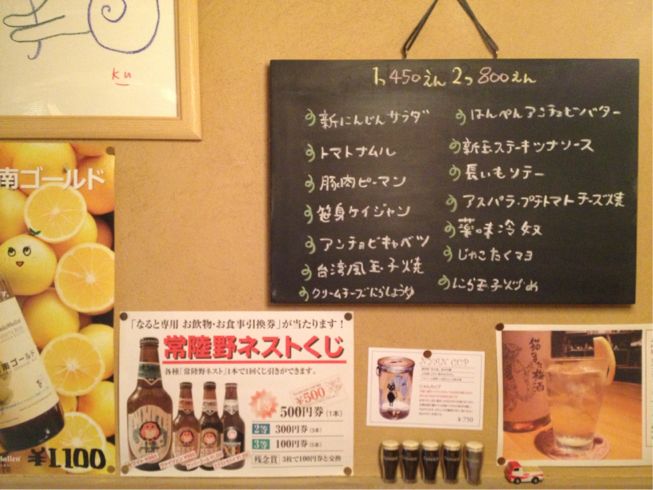 ku
1つ450えん 2つ800えん
新にんじんサラダ
トマトナムル
豚肉ピーマン
笹身ケイジャン
アンチョビキャベツ
台湾風玉子焼
クリームチーズにらしょうゆ
はんぺんアンチョビバター
新玉ステーキツナソース
長いもソテー
アスパラ・プチトマトチーズ焼
薬味冷奴
じゃこたくマヨ
にら玉子炒め
南ゴールド
南ゴールド
¥1,100
「なると専用 お飲物・お食事引換券」が当たります!
常陸野ネストくじ
各種「常陸野ネスト」1本で1回くじ引きができます。
¥500
500円券(1本)
2等 300円券
3等 100円券
残念賞 3枚で100円券と交換
CUP
¥750
梅酒